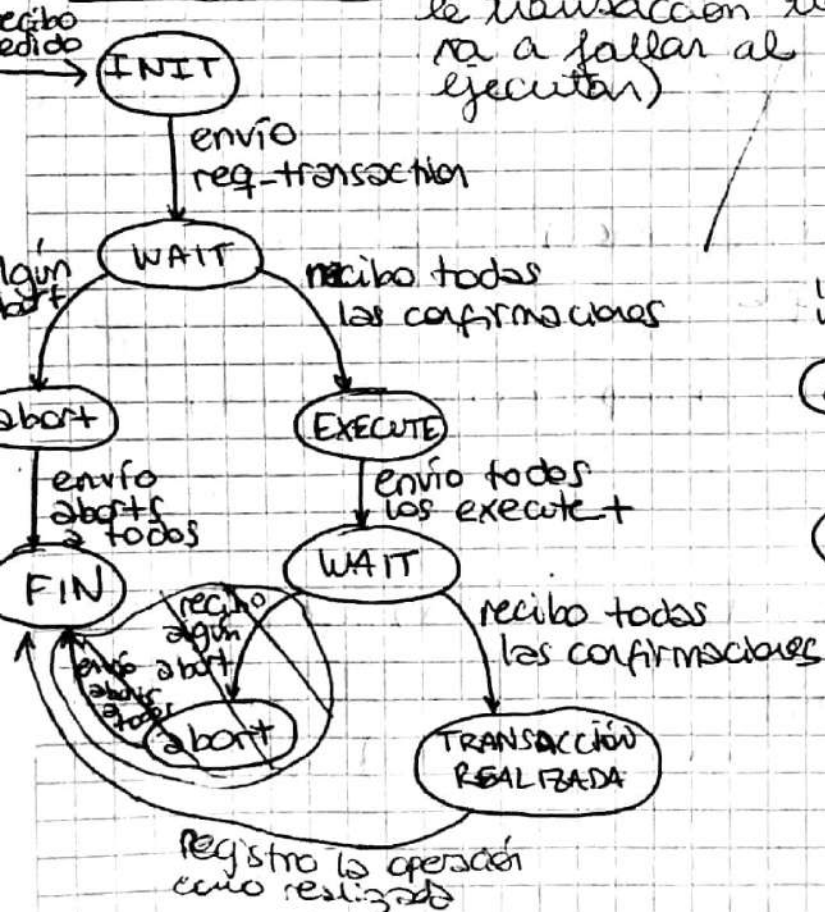 recibo
pedido
le transacción
va a fallar al
ejecutar)
INIT
envío
req-transaction
WAIT
algún
abort
recibo todas
las confirmaciones
abort
EXECUTE
envío
aborts
a todos
envío todos
los execute +
FIN
WAIT
recibo
algún
abort
envío
aborts
a todos
abort
recibo todas
las confirmaciones
TRANSACCIÓN
REALIZADA
registro la operación
como realizada